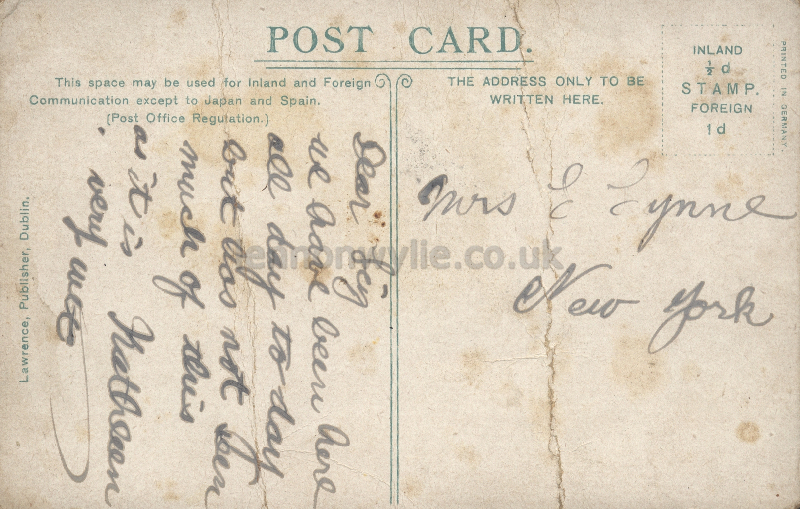 POST CARD.
This space may be used for Inland and Foreign
Communication except to Japan and Spain.
(Post Office Regulation.)
THE ADDRESS ONLY TO BE
WRITTEN HERE.
INLAND
½d
STAMP.
FOREIGN
1d
PRINTED IN GERMANY.
Lawrence, Publisher, Dublin.
Dear
we have been here
all day to day
but has not seen
much of this
as it is
very wet
Kathleen
Mrs E Eynne
New York